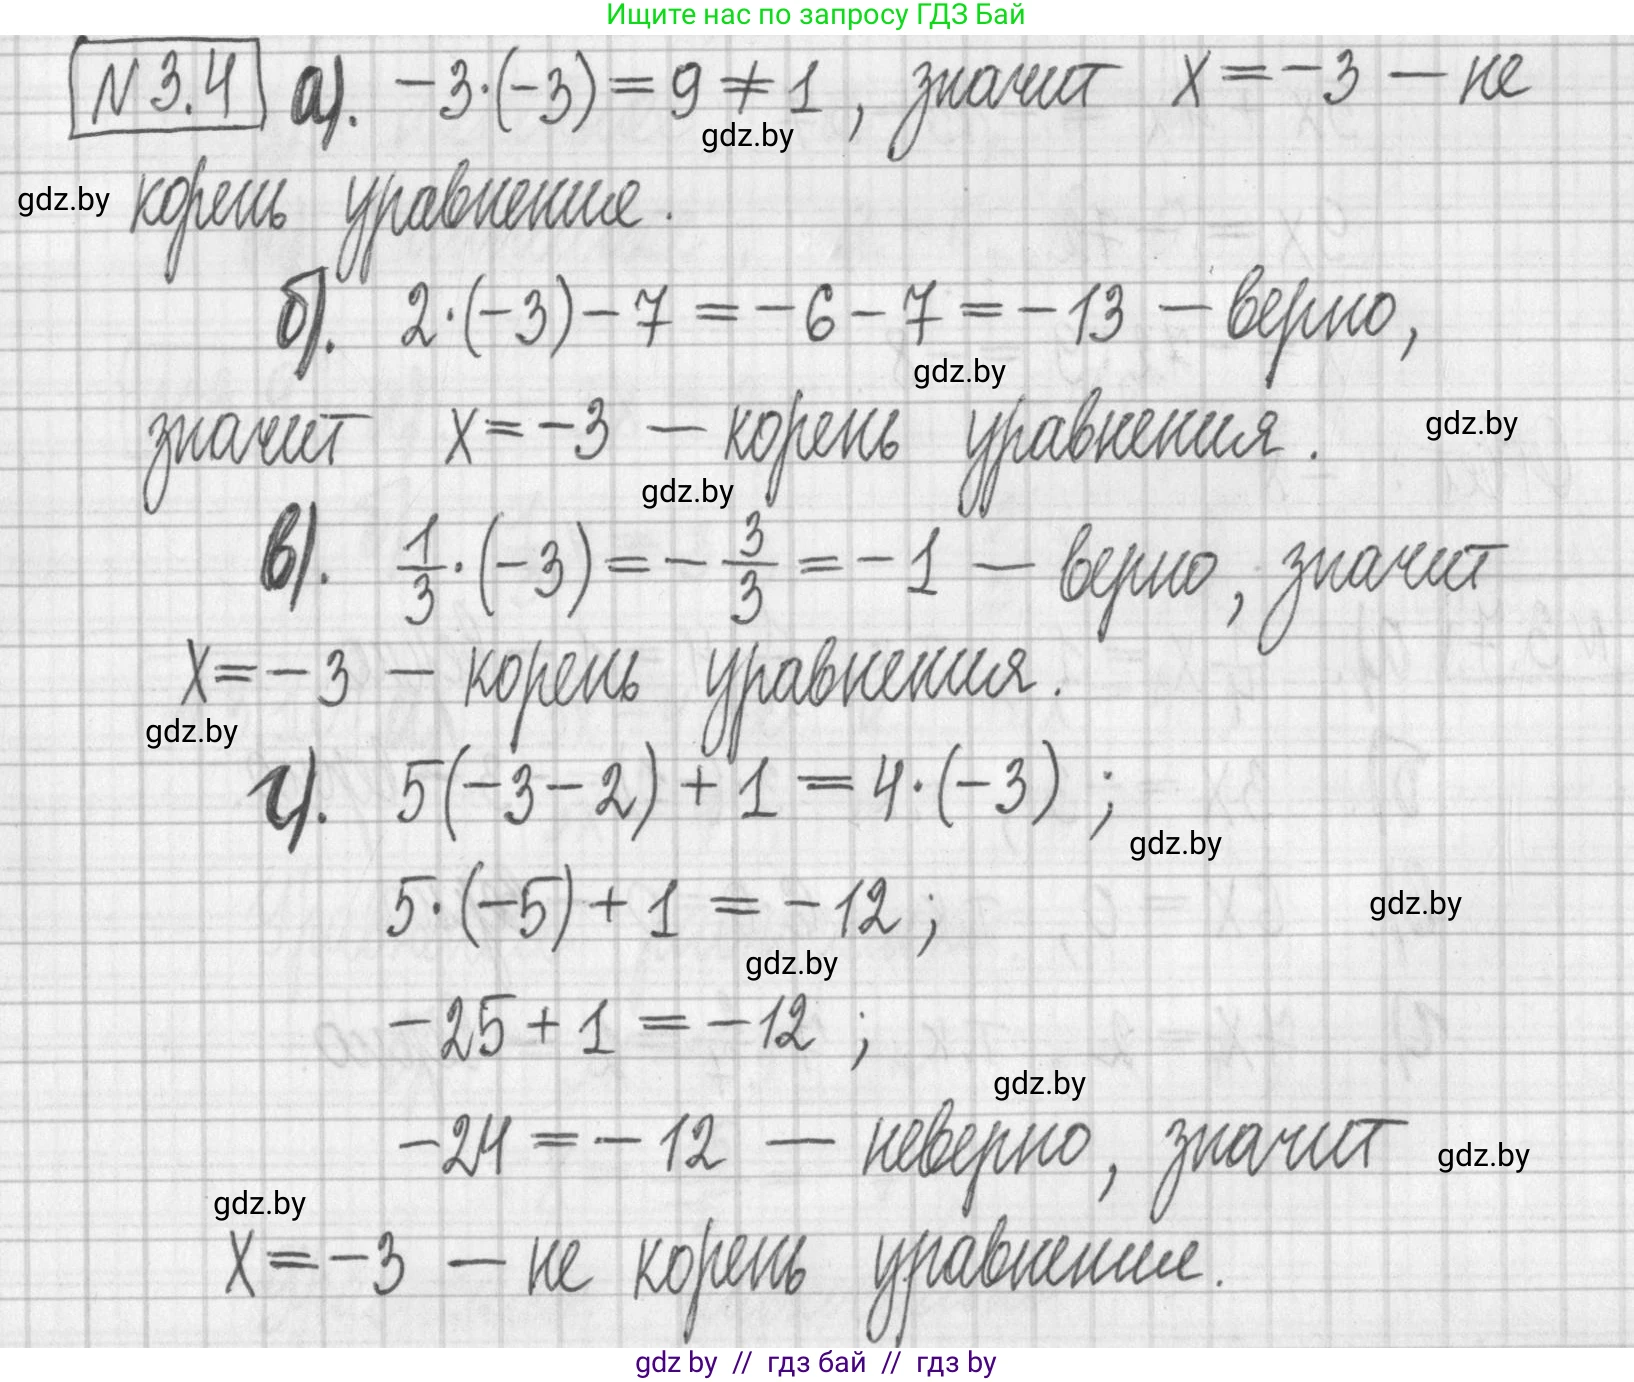 Ищите нас по запросу ГДЗ Бай
N 3.4 а). -3·(-3) = 9 ≠ 1, значит x = -3 — не
gdz.by
gdz.by корень уравнение.
б). 2·(-3) - 7 = -6 - 7 = -13 — верно,
gdz.by
значит x = -3 — корень уравнения. gdz.by
gdz.by
в). 1/3·(-3) = -3/3 = -1 — верно, значит
x = -3 — корень уравнения.
gdz.by
г). 5(-3-2) + 1 = 4·(-3) ;
gdz.by
5·(-5) + 1 = -12 ; gdz.by
gdz.by
-25 + 1 = -12 ;
gdz.by
-24 = -12 — неверно, значит gdz.by
gdz.by
x = -3 — не корень уравнение.
gdz by // гдз бай // гдз by